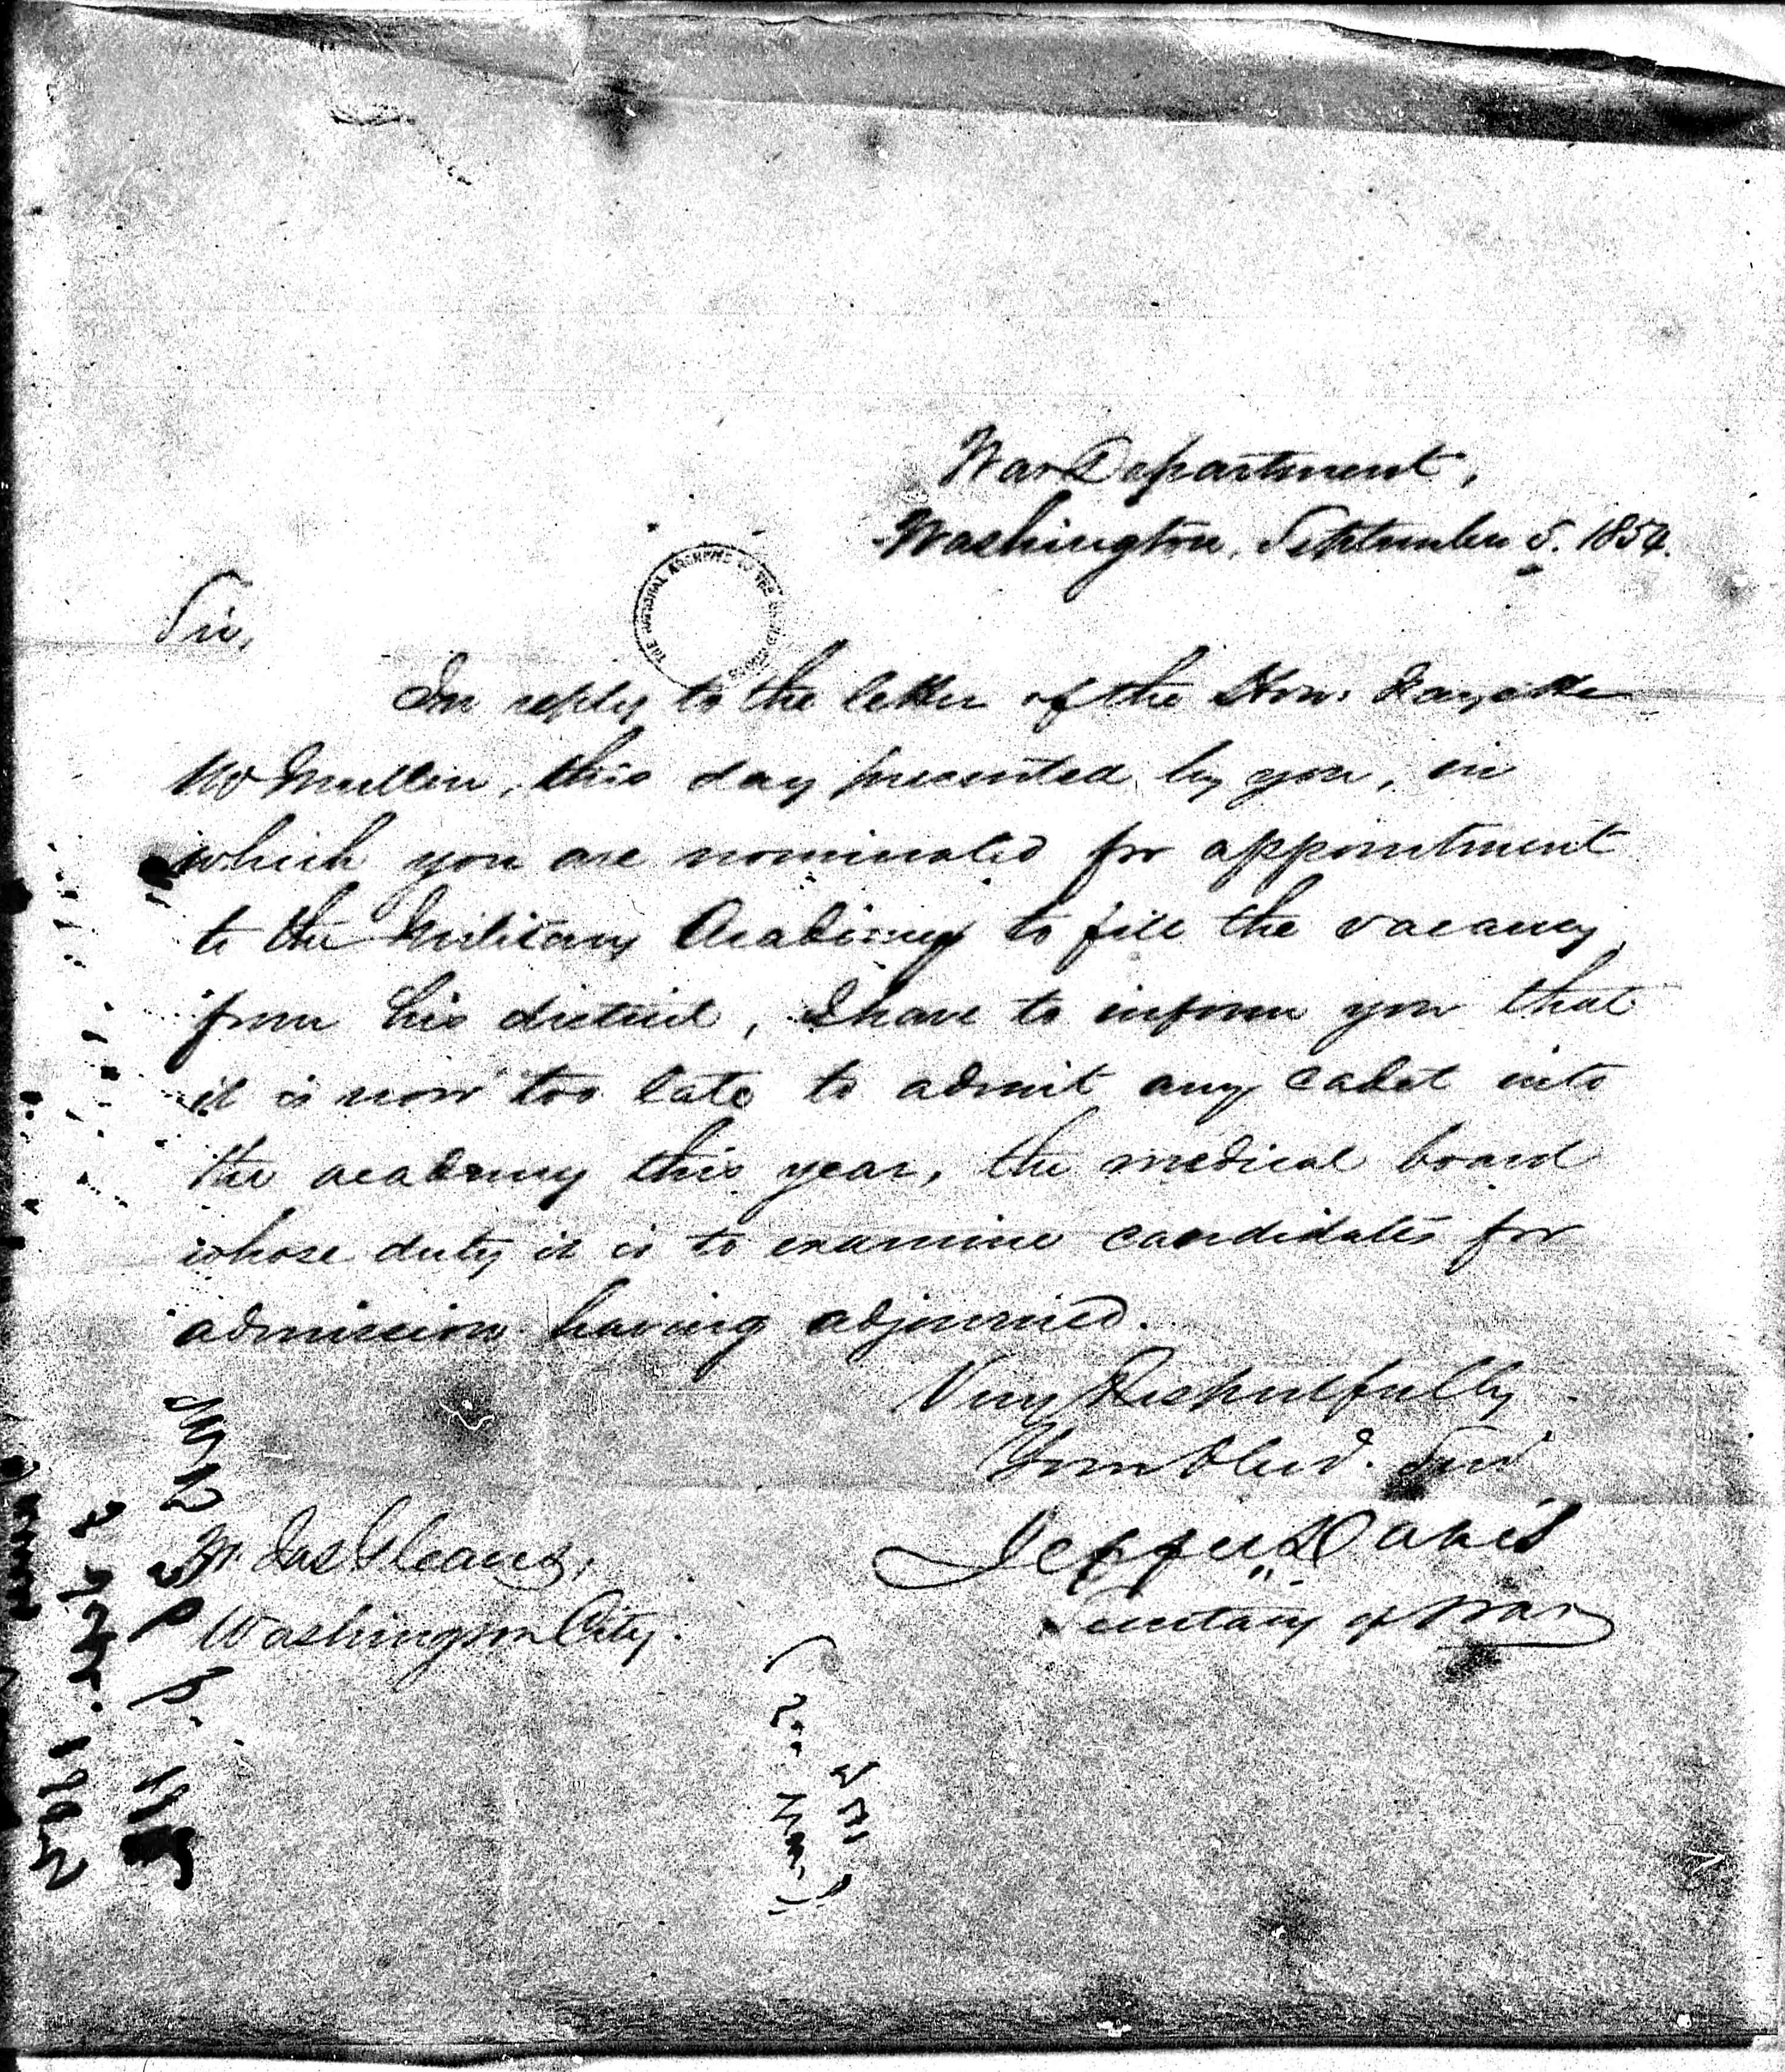 War Department,
Washington, September 5. 1854.
THE NATIONAL ARCHIVES OF THE UNITED STATES
Sir,
In reply to the letter of the Hon: Fayette
McMullin, this day presented by you, in
which you are nominated for appointment
to the Military Academy to fill the vacancy
from his district, I have to inform you that
it is now too late to admit any cadet into
the academy this year, the medical board
whose duty it is to examine candidates for
admission having adjourned.
Very Respectfully
Your Obed. Serv
Jeffer. Davis
Secretary of War
Mr. Jas
Washington City.